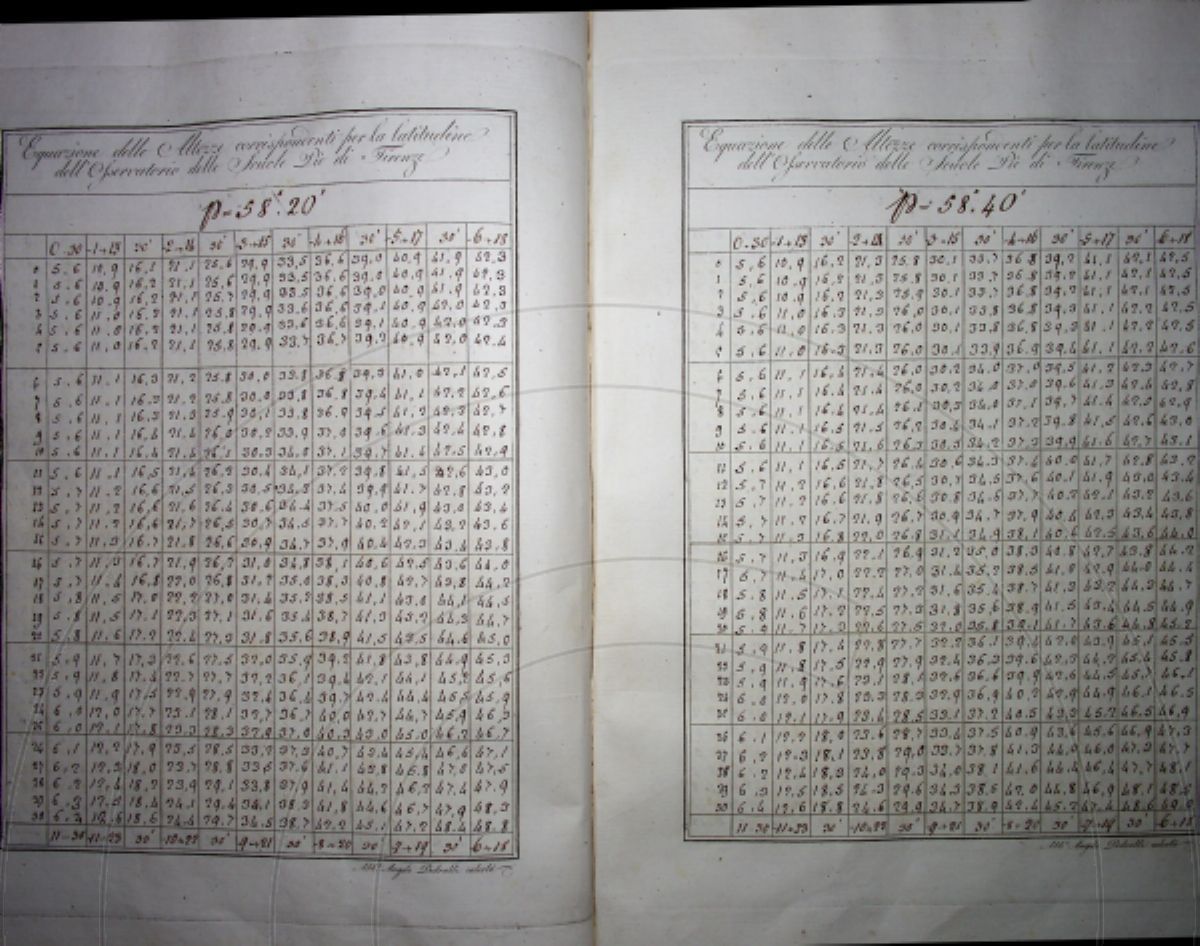 Equazione delle Altezze corrispondenti per la latitudine
dell'Osservatorio delle Scuole Pie di Firenze
p=58'.20"
0-30 -1+13 30' -2+14 30' -3+15 30' -4+16 30' -5+17 30' -6+18
0 5.6 10.9 16.1 21.1 25.6 29.9 33.5 36.6 39.0 40.9 41.9 42.3
1 5.6 10.9 16.2 21.1 25.6 29.9 33.5 36.6 39.0 40.9 41.9 42.3
2 5.6 10.9 16.2 21.1 25.7 29.9 33.5 36.6 39.0 40.9 41.9 42.3
3 5.6 11.0 16.2 21.1 25.8 29.9 33.6 36.6 39.1 40.9 42.0 42.3
4 5.6 11.0 16.2 21.1 25.8 29.9 33.6 36.6 39.1 40.9 42.0 42.3
5 5.6 11.0 16.2 21.1 25.8 29.9 33.7 36.7 39.2 40.9 42.0 42.4
6 5.6 11.1 16.3 21.2 25.8 30.0 33.8 36.8 39.3 41.0 42.1 42.5
7 5.6 11.1 16.3 21.2 25.8 30.0 33.8 36.8 39.4 41.1 42.2 42.6
8 5.6 11.1 16.3 21.3 25.9 30.1 33.8 36.9 39.5 41.2 42.3 42.7
9 5.6 11.1 16.4 21.4 26.0 30.2 33.9 37.0 39.6 41.3 42.4 42.8
10 5.6 11.1 16.4 21.4 26.1 30.3 34.0 37.1 39.7 41.4 42.5 42.9
11 5.6 11.1 16.5 21.4 26.2 30.4 34.1 37.2 39.8 41.5 42.6 43.0
12 5.7 11.2 16.6 21.5 26.3 30.5 34.3 37.4 39.9 41.7 42.8 43.2
13 5.7 11.2 16.6 21.6 26.4 30.6 34.4 37.5 40.0 41.9 43.0 43.4
14 5.7 11.2 16.6 21.7 26.5 30.7 34.5 37.7 40.2 42.1 43.2 43.6
15 5.7 11.3 16.7 21.8 26.6 30.9 34.7 37.9 40.4 42.3 43.4 43.8
16 5.7 11.3 16.7 21.9 26.7 31.0 34.8 38.1 40.6 42.5 43.6 44.0
17 5.7 11.4 16.8 22.0 26.8 31.2 35.0 38.3 40.8 42.7 43.8 44.2
18 5.8 11.5 17.0 22.2 27.0 31.4 35.2 38.5 41.1 43.0 44.1 44.5
19 5.8 11.5 17.1 22.3 27.1 31.6 35.4 38.7 41.3 43.2 44.3 44.7
20 5.8 11.6 17.2 22.4 27.3 31.8 35.6 38.9 41.5 43.5 44.6 45.0
21 5.9 11.7 17.3 22.6 27.5 32.0 35.9 39.2 41.8 43.8 44.9 45.3
22 5.9 11.8 17.4 22.7 27.7 32.2 36.1 39.4 42.1 44.1 45.2 45.6
23 5.9 11.9 17.5 22.9 27.9 32.4 36.4 39.7 42.4 44.4 45.5 45.9
24 6.0 12.0 17.7 23.1 28.1 32.7 36.7 40.0 42.7 44.7 45.9 46.3
25 6.0 12.1 17.8 23.3 28.3 32.9 37.0 40.3 43.0 45.0 46.2 46.7
26 6.1 12.2 17.9 23.5 28.5 33.2 37.3 40.7 43.4 45.4 46.6 47.1
27 6.2 12.3 18.0 23.7 28.8 33.5 37.6 41.1 43.8 45.8 47.0 47.5
28 6.2 12.4 18.2 23.9 29.1 33.8 37.9 41.4 44.2 46.2 47.4 47.9
29 6.3 12.5 18.4 24.1 29.4 34.1 38.3 41.8 44.6 46.7 47.9 48.3
30 6.3 12.6 18.6 24.4 29.7 34.5 38.7 42.2 45.1 47.2 48.4 48.8
11-30 -11+23 30' -10+22 30' -9+21 30' -8+20 30' -7+19 30' -6+18
Angelo calcolò
Equazione delle Altezze corrispondenti per la latitudine
dell'Osservatorio delle Scuole Pie di Firenze
p=58'.40"
0-30 -1+13 30' -2+14 30' -3+15 30' -4+16 30' -5+17 30' -6+18
0 5.6 10.9 16.2 21.3 25.8 30.1 33.7 36.8 39.2 41.1 42.1 42.5
1 5.6 10.9 16.2 21.3 25.8 30.1 33.7 36.8 39.2 41.1 42.1 42.5
2 5.6 10.9 16.2 21.3 25.9 30.1 33.7 36.8 39.2 41.1 42.1 42.5
3 5.6 11.0 16.2 21.3 26.0 30.1 33.8 36.8 39.3 41.1 42.2 42.5
4 5.6 11.0 16.3 21.3 26.0 30.1 33.8 36.8 39.3 41.1 42.2 42.5
5 5.6 11.0 16.3 21.3 26.0 30.1 33.9 36.9 39.4 41.1 42.2 42.6
6 5.6 11.1 16.4 21.4 26.0 30.2 34.0 37.0 39.5 41.2 42.3 42.7
7 5.6 11.1 16.4 21.4 26.0 30.2 34.0 37.0 39.6 41.3 42.4 42.8
8 5.6 11.1 16.4 21.4 26.1 30.3 34.0 37.1 39.7 41.4 42.5 42.9
9 5.6 11.1 16.5 21.5 26.2 30.4 34.1 37.2 39.8 41.5 42.6 43.0
10 5.6 11.1 16.5 21.6 26.3 30.5 34.2 37.3 39.9 41.6 42.7 43.1
11 5.6 11.1 16.5 21.7 26.4 30.6 34.3 37.4 40.0 41.7 42.8 43.2
12 5.7 11.2 16.6 21.8 26.5 30.7 34.5 37.6 40.1 41.9 43.0 43.4
13 5.7 11.2 16.6 21.8 26.6 30.8 34.6 37.7 40.2 42.1 43.2 43.6
14 5.7 11.2 16.7 21.9 26.7 30.9 34.7 37.9 40.4 42.3 43.4 43.8
15 5.7 11.3 16.8 22.0 26.8 31.1 34.9 38.1 40.6 42.5 43.6 44.0
16 5.7 11.3 16.9 22.1 26.9 31.2 35.0 38.3 40.8 42.7 43.8 44.2
17 5.7 11.4 17.0 22.2 27.0 31.4 35.2 38.5 41.0 42.9 44.0 44.4
18 5.8 11.5 17.1 22.4 27.2 31.6 35.4 38.7 41.3 43.2 44.3 44.7
19 5.8 11.6 17.2 22.5 27.3 31.8 35.6 38.9 41.5 43.4 44.5 44.9
20 5.8 11.7 17.3 22.6 27.5 32.0 35.8 39.1 41.7 43.6 44.8 45.2
21 5.9 11.8 17.4 22.8 27.7 32.2 36.1 39.4 42.0 43.9 45.1 45.5
22 5.9 11.8 17.5 22.9 27.9 32.4 36.3 39.6 42.3 44.2 45.4 45.8
23 5.9 11.9 17.6 23.1 28.1 32.6 36.6 39.9 42.6 44.5 45.7 46.1
24 6.0 12.0 17.8 23.2 28.3 32.9 36.9 40.2 42.9 44.9 46.1 46.5
25 6.0 12.1 17.9 23.4 28.5 33.1 37.2 40.5 43.3 45.2 46.5 46.9
26 6.1 12.2 18.0 23.6 28.7 33.4 37.5 40.9 43.6 45.6 46.9 47.3
27 6.2 12.3 18.1 23.8 29.0 33.7 37.8 41.3 44.0 46.0 47.3 47.7
28 6.2 12.4 18.3 24.0 29.3 34.0 38.1 41.6 44.4 46.4 47.7 48.1
29 6.3 12.5 18.5 24.3 29.6 34.3 38.5 42.0 44.8 46.9 48.1 48.6
30 6.4 12.6 18.8 24.6 29.9 34.7 38.9 42.4 45.2 47.4 48.6 49.0
11-30 -11+23 30' -10+22 30' -9+21 30' -8+20 30' -7+19 30' -6+18
Angelo calcolò